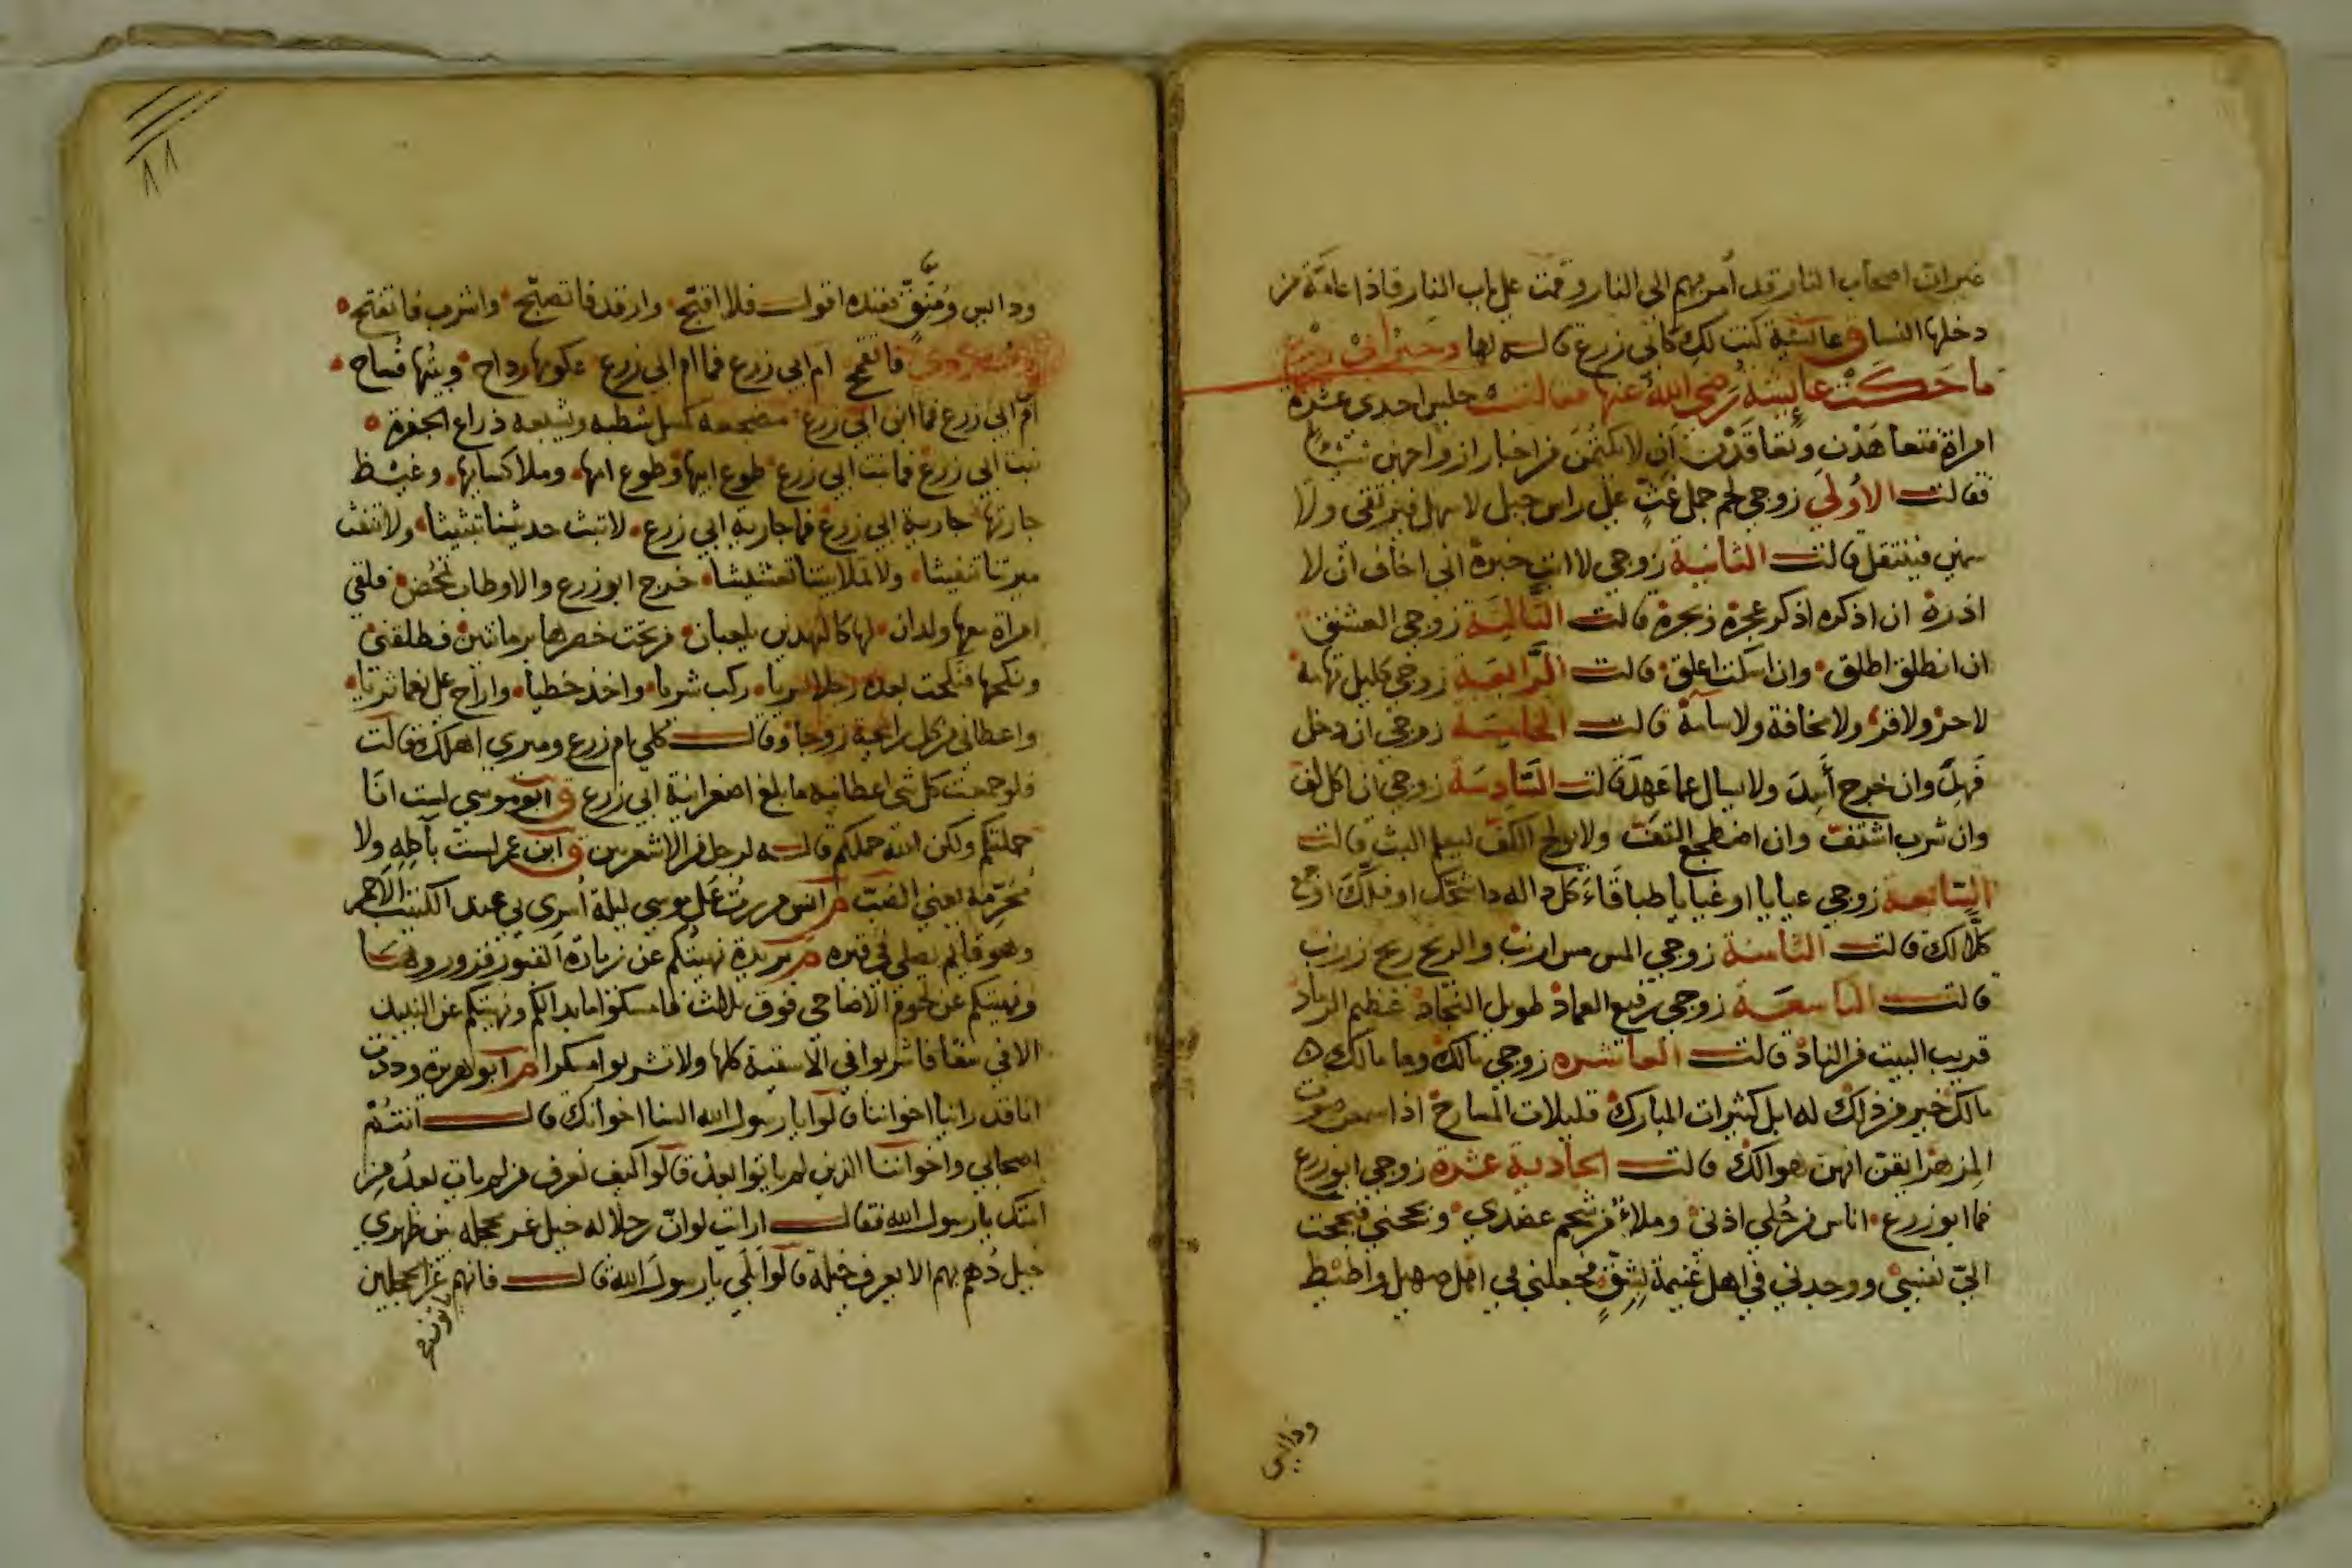 غير ان اصحاب النار قد أمر بهم الى النار وقمت على باب النار فاذا عامة من
دخلها النسا ق عائشة كنت لك كابي زرع قاله لها وحديث ام زرع
ما حكت عايشة رضي الله عنها فقالت جلس احدى عشرة
امراة فتعاهدن وتعاقدن ان لا يكتمن من اخبار ازواجهن شيئا
فقالت الأولى زوجي لحم جمل غث على راس جبل لا سهل فيرتقى ولا
سمين فينتقل قالت الثانية زوجي لا ابث خبره اني اخاف ان لا
اذره ان اذكره اذكر عجره وبجره قالت الثالثة زوجي العشنق
ان انطق اطلق وان اسكت اعلق قالت الرابعة زوجي كليل تهامة
لا حر ولا قر ولا مخافة ولا سآمة قالت الخامسة زوجي ان دخل
فهد وان خرج أسد ولا يسال عما عهد قالت السادسة زوجي ان اكل لف
وان شرب اشتف وان اضطجع التف ولا يولج الكف ليعلم البث قالت
السابعة زوجي عيايا او غيايا طباقاء كل داء له داء شجك او فلك او جمع
كلا لك قالت الثامنة زوجي المس مس ارنب والريح ريح زرنب
قالت التاسعة زوجي رفيع العماد طويل النجاد عظيم الرماد
قريب البيت من الناد قالت العاشرة زوجي مالك وما مالك
مالك خير من ذلك له ابل كثيرات المبارك قليلات المسارح اذا سمعن صوت
المزهر ايقن انهن هوالك قالت الحادية عشرة زوجي ابو زرع
فما ابو زرع اناس من حلي اذني وملأ من شحم عضدي وبجحني فبجحت
الي نفسي ووجدني في اهل غنيمة بشق فجعلني في اهل صهيل واطيط
ودايس
١١
ودايس ومنق فعنده اقول فلا اقبح وارقد فاتصبح واشرب فاتقنح
فاتقمح ام ابي زرع فما ام ابي زرع عكومها رداح وبيتها فساح
ام ابي زرع فما ابن ابي زرع مضجعه كمسل شطبه ويشبعه ذراع الجفرة
بنت ابي زرع فما بنت ابي زرع طوع ابيها وطوع امها وملا كسايها وغيظ
جارتها جارية ابي زرع فما جارية ابي زرع لا تبث حديثنا تبثيثا ولا تنقث
ميرتنا تنقيثا ولا تملا بيتنا تعشيشا خرج ابو زرع والاوطاب تمخض فلقي
امراة معها ولدان لها كالفهدين يلعبان من تحت خصرها برمانتين فطلقني
ونكحها فنكحت بعده رجلا سريا ركب شريا واخذ خطيا واراح علي نعما ثريا
واعطاني من كل رائحة زوجا وقال كلي ام زرع وميري اهلك فقالت
فلو جمعت كل شي اعطانيه ما بلغ اصغر انية ابي زرع ق ابو موسي لست انا
حملتكم ولكن الله حملكم قاله لرجل من الاشعريين ق ابن عمر لست بآكله ولا
محرمه يعني الضب م انس مررت على موسي ليلة أسري بي عند الكثيب الاحمر
وهو قايم يصلي في قبره م بريدة نهيتكم عن زيارة القبور فزوروها
ونهيتكم عن لحوم الاضاحي فوق ثلاث فامسكوا ما بدا لكم ونهيتكم عن النبيذ
الا في سقا فاشربوا في الاسقية كلها ولا تشربوا مسكرا م ابو هريرة وددت
انا قد راينا اخواننا قالوا يا رسول الله السنا اخوانك قال انتم
اصحابي واخواننا الذين لم ياتوا بعد قالوا كيف تعرف من لم يات بعد من
امتك يا رسول الله فقال ارايت لو ان رجلا له خيل غر محجله بين ظهري
خيل دهم بهم الا يعرف خيله قالوا بلى يا رسول الله قال فانهم غرا محجلين